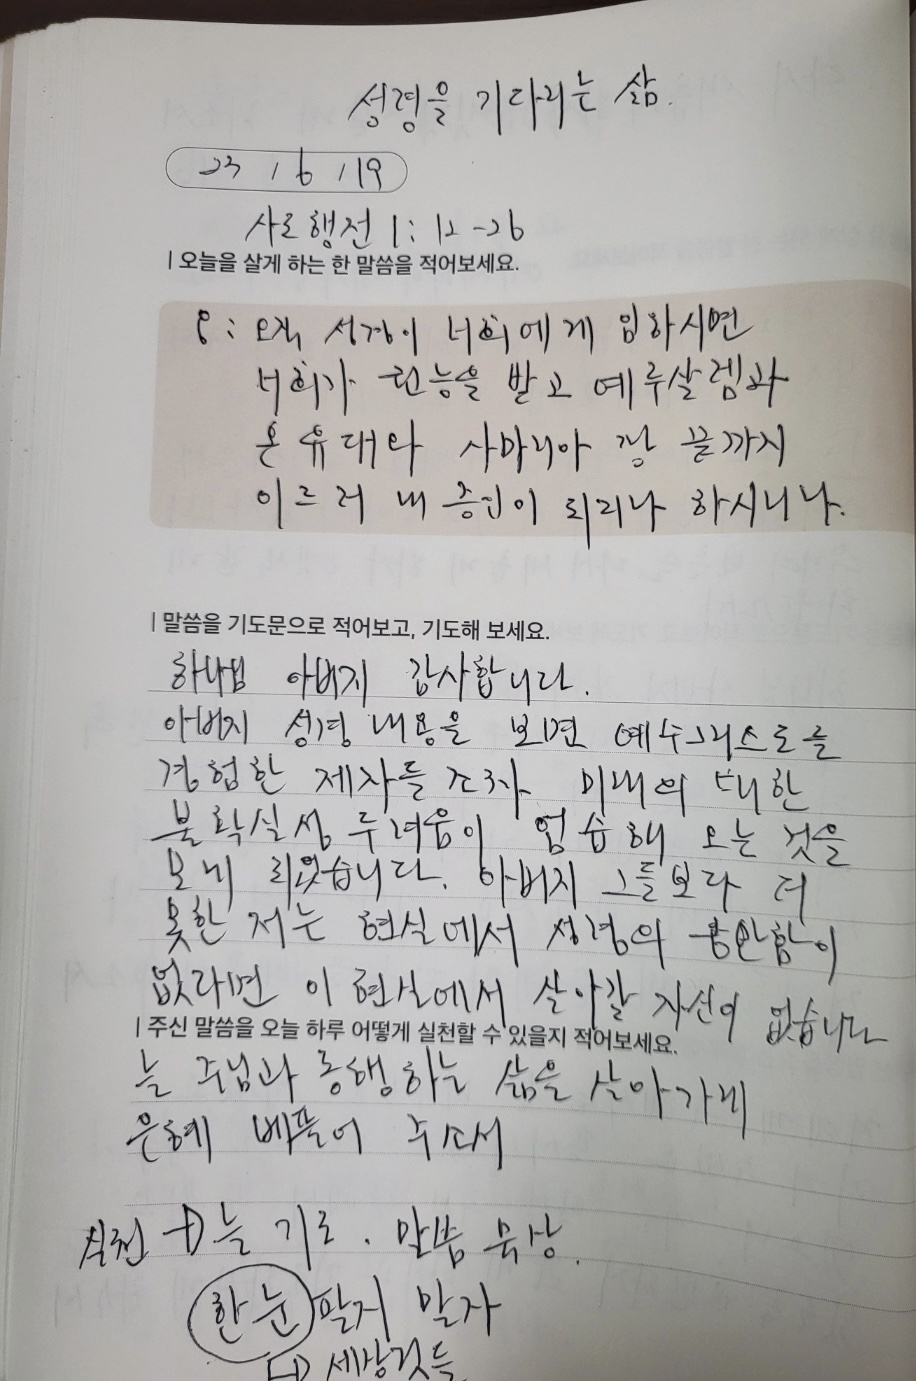 성령을 기다리는 삶.
23 / 6 / 19
사도행전 1: 12-26
| 오늘을 살게 하는 한 말씀을 적어보세요.
8: 오직 성령이 너희에게 임하시면
너희가 권능을 받고 예루살렘과
온 유대와 사마리아 땅 끝까지
이르러 내 증인이 되리라 하시니라.
| 말씀을 기도문으로 적어보고, 기도해 보세요.
하나님 아버지 감사합니다.
아버지 성경 내용을 보면 예수그리스도를
경험한 제자들 조차 미래의 대한
불확실성 두려움이 엄습해 오는 것을
보게 되었습니다. 아버지 그들보다 더
못한 저는 현실에서 성령의 충만함이
없다면 이 현실에서 살아갈 자신이 없습니다
| 주신 말씀을 오늘 하루 어떻게 실천할 수 있을지 적어보세요.
늘 주님과 동행하는 삶을 살아가게
은혜 베풀어 주소서
실천 → 늘 기도. 말씀 묵상.
한눈 팔지 말자
↳ 세상것들